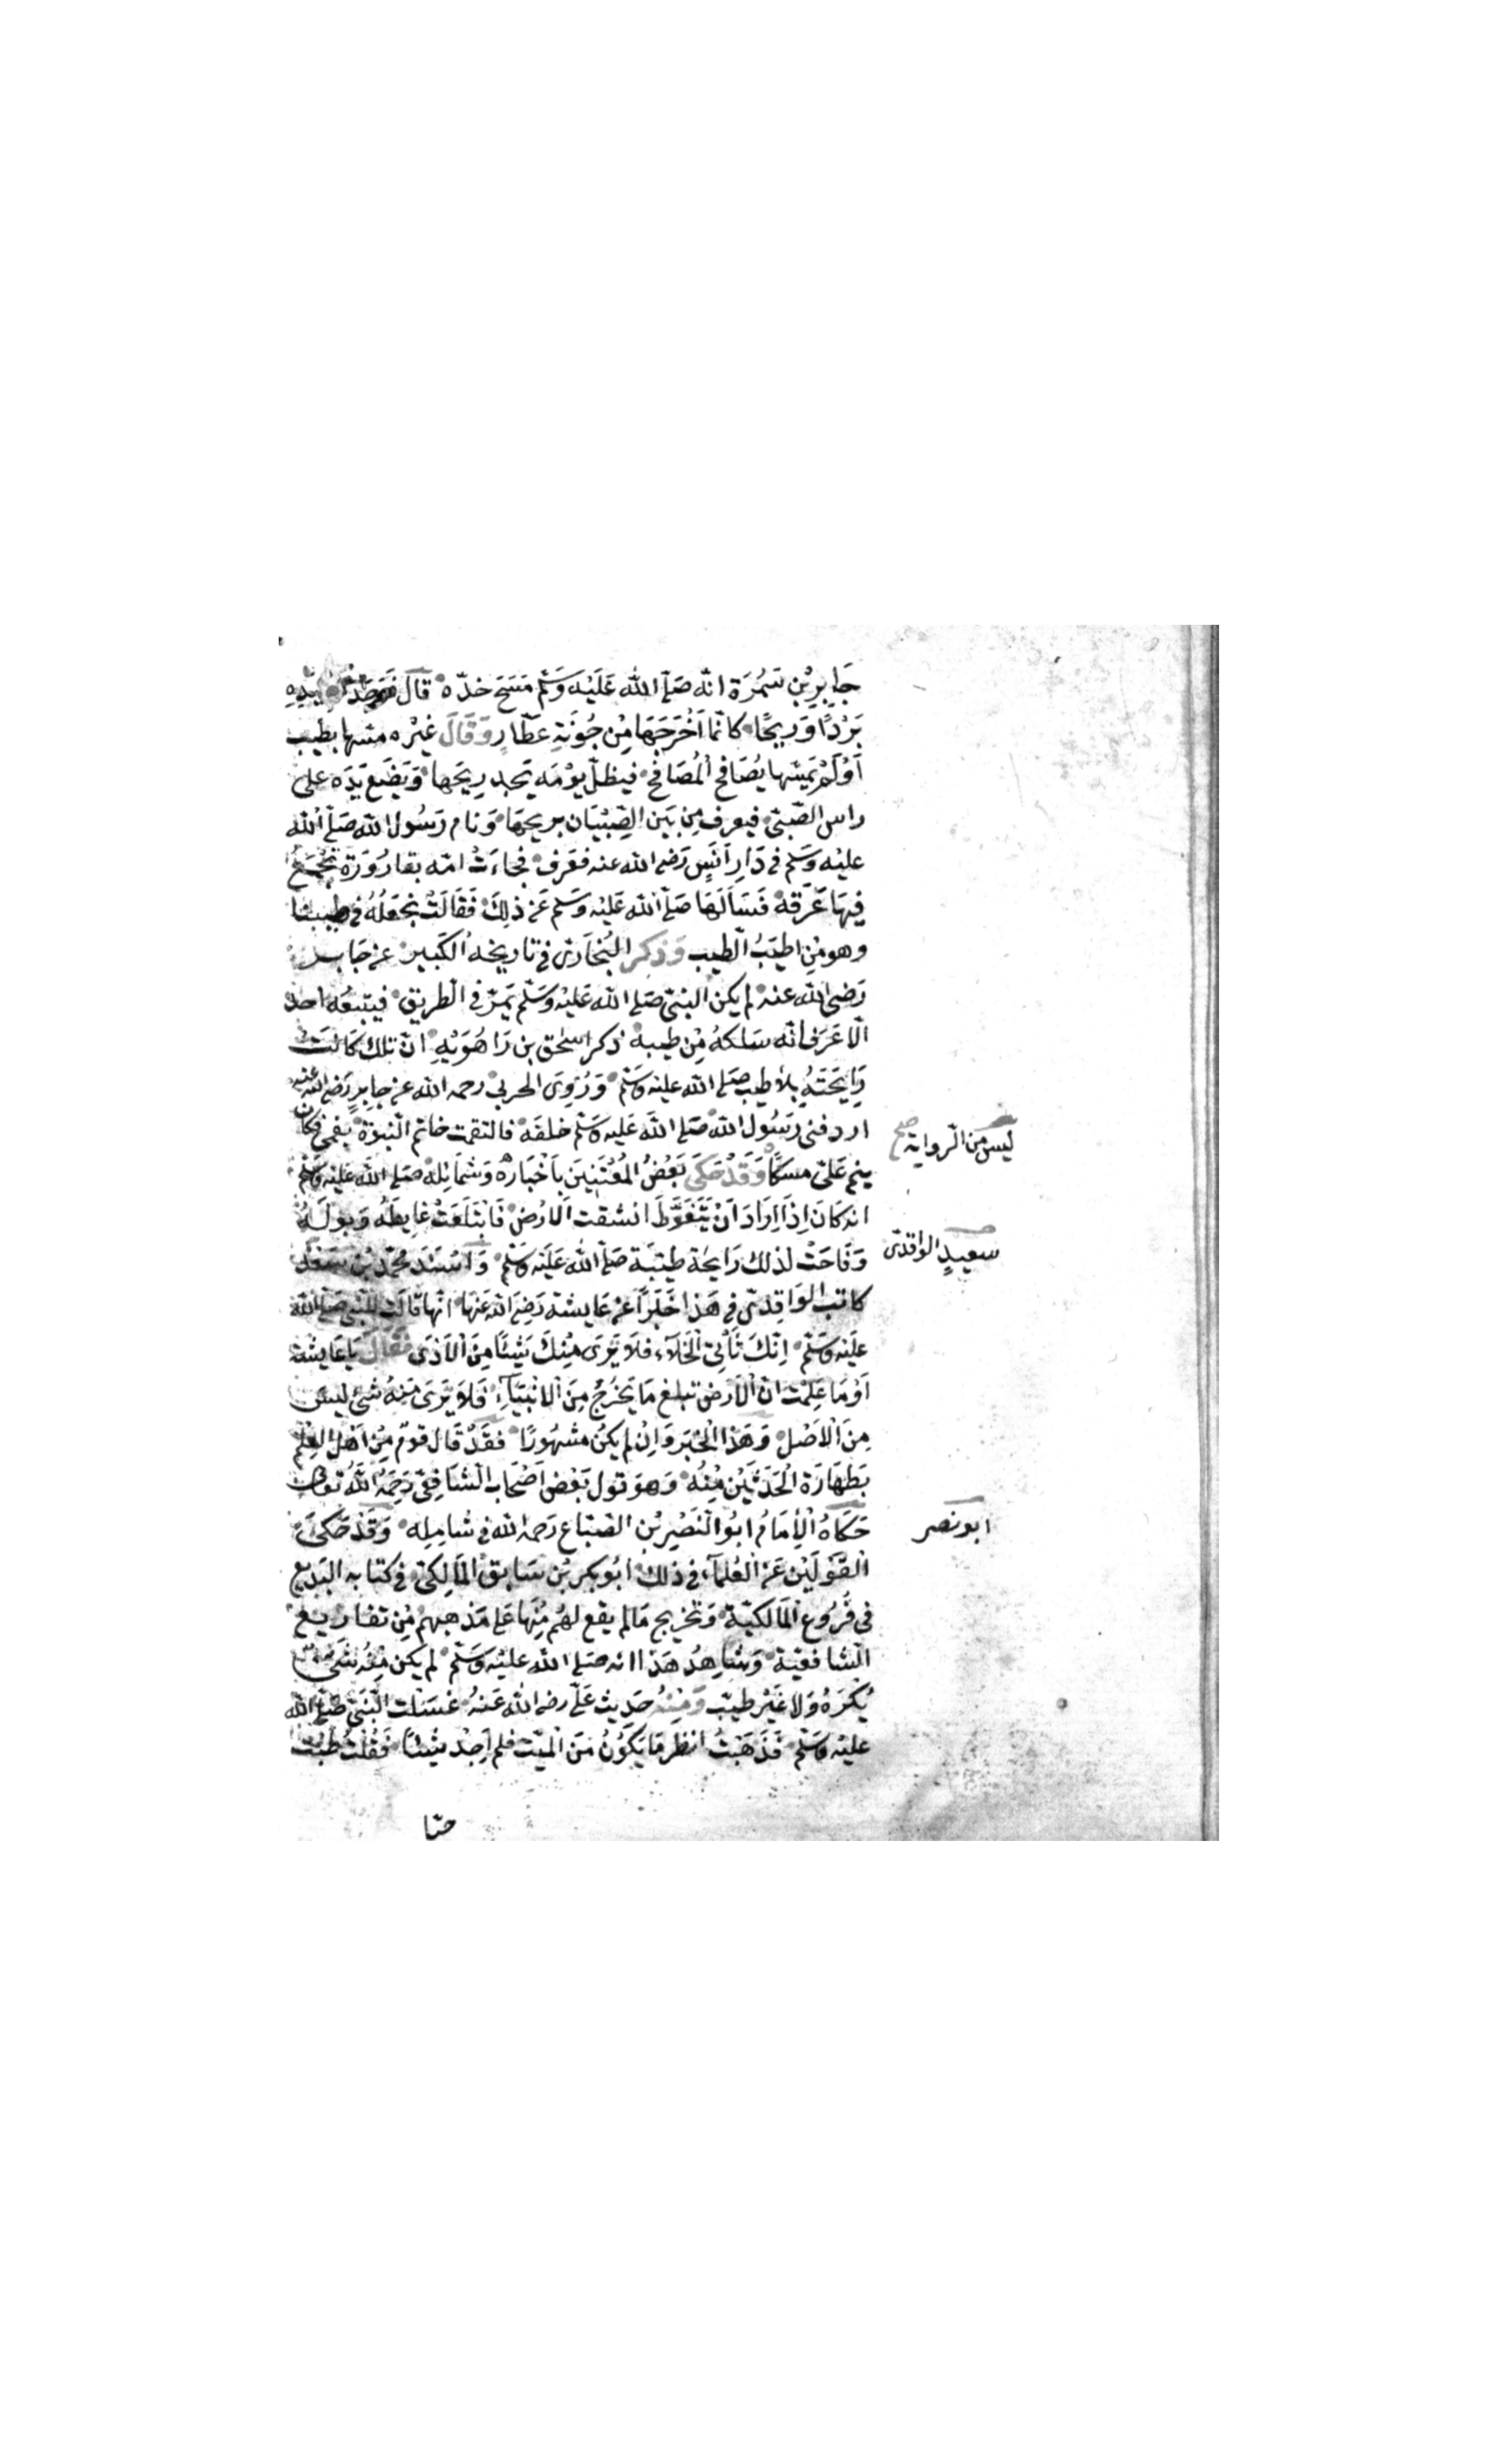 جَابِرِ بْنِ سَمُرَة انّه صَلّى الله عَلَيْه وَسَلّم مَسَحَ خدّه قال فَوَجَدْتُ لِيَدِهِ
بَرْدًا وَرِيحًا كانّما اَخْرَجَهَا مِنْ جُونَةِ عَطّارٍ وَقَالَ غَيْره مسّها بطيب
اَوْ لَمْ يَمَسّها يُصَافح الْمُصَافح فيظلّ يوْمَه يَجد رِيحَها وَيَضَع يَدَه على
راس الصّبيّ فيعرف مِن بَين الصِّبْيَان بريحهَا وَنام رَسُول الله صَلّى الله
عليْه وَسَلم فى دَار اَنَسٍ رَضى الله عنه فعَرق فجاءَتْ امّه بقارُورَة تجْمَعُ
فِيهَا عَرَقَهُ فَسَاَلَهَا صَلّى الله عَليْه وَسَلم عَن ذلِكَ فَقَالَتْ نجعَلُهُ فى طِيبنَا
وهو مِن اطيَبُ الطيب وَذكر البُخارىّ فى تاريخه الكَبير عن جَابر
رَضى الله عنه لم يكن النبىّ صَلى الله عَليْه وَسَلّم يَمرّ فى الطريق فيتبعُه احد
الّا عَرَف انّه سَلكهُ مِن طيبه ذكر اسْحٰق بن رَاهُوَيْهِ انّ تلك كَانَتْ
رَايِحَتَهُ بِلَا طيب صَلى الله عليه وسَلم وَرَوَى الحربى رحمه الله عن جابرٍ رَضى الله عنه
اردفنى رَسُول الله صَلى الله عَليه وَسَلم خلفَه فالتقمت خاتم النّبوّة بفمى فكان
ينم عَلىّ مسكًا وَقَدْ حَكَى بَعْضُ الْمُعْتَنِينَ بِاَخْبَارهِ وَشَمَائِله صَلى الله عَليْه وَسَلم
انه كَانَ اِذَا اَرَادَ اَنْ يَتَغَوَّطَ انشقت الْارْض فَابْتَلَعَتْ غايِطَهُ وَبولَهُ
وَفَاحَتْ لذلك رَايحَة طيّبَة صَلّى الله عَلَيْه وَسَلّم وَاَسْنَدَ مُحَمّد بْن سَعْد
كاتب الوَاقدِىّ فى هَذا خَبَراً عن عَايشة رَضِىَ الله عَنهَا انّها قالَت للنّبى صَلى الله
عليْه وسَلّم اِنّكَ تَاْتى الْخَلَآءَ فلَا يَرَى مِنكَ شَيْئًا مِنَ الْاَذَى فَقَالَ يَا عَايشة
اَوْ مَا عَلِمْت انّ الْارْض تبلغ مَا يَخْرُجُ مِنَ الْانْبيَآءِ فلَا يَرَى مِنْهُ شئ ليسَ
مِنَ الْاَصْل وَهَذا الْخَبَر وَاِنْ لم يكن مشهُورًا فقَدْ قَالَ قومٌ مِن اَهْل العِلْم
بَطهَارَة الْحَدَثَيْن مِنْهُ وَهوَ قول بَعْض اَصْحَاب الشّافعىّ رَحِمَهُ الله تعالى
حَكَاهُ الْاِمَامُ ابُو النَّصْر بْن الصّباغ رَحمه الله فى شامِلِه وَقَدْ حَكَى
الْقَوْلَيْن عَن الْعُلمآء فى ذلك ابُو بكر بْن سَابق الْمَالكىّ فى كتابه البَديع
فى فُرُوع الْمَالكيّة وَتخريج مَا لم يقع لهُم مِنْهَا عَلى مَذهبهم مِن تفاريع
الشّافعيّة وَشاهِدُ هَذا انه صَلى الله عليْه وَسَلّم لم يكن مِنْهُ شىءٌ
يُكرَهُ وَلا غَيْر طيّب وَمِنْهُ حَديث عَلىّ رضى الله عَنهُ غسَلت النّبىّ صَلى الله
عليْه وَسَلم فذَهَبْتُ انظر مَا يَكونُ مِنَ الْميّت فلم اَجِدْ شَيْئًا فَقُلْتُ طبْتَ
حيّا
ليس من الرواية صح
سعيدٍ الواقدى
ابو نصر